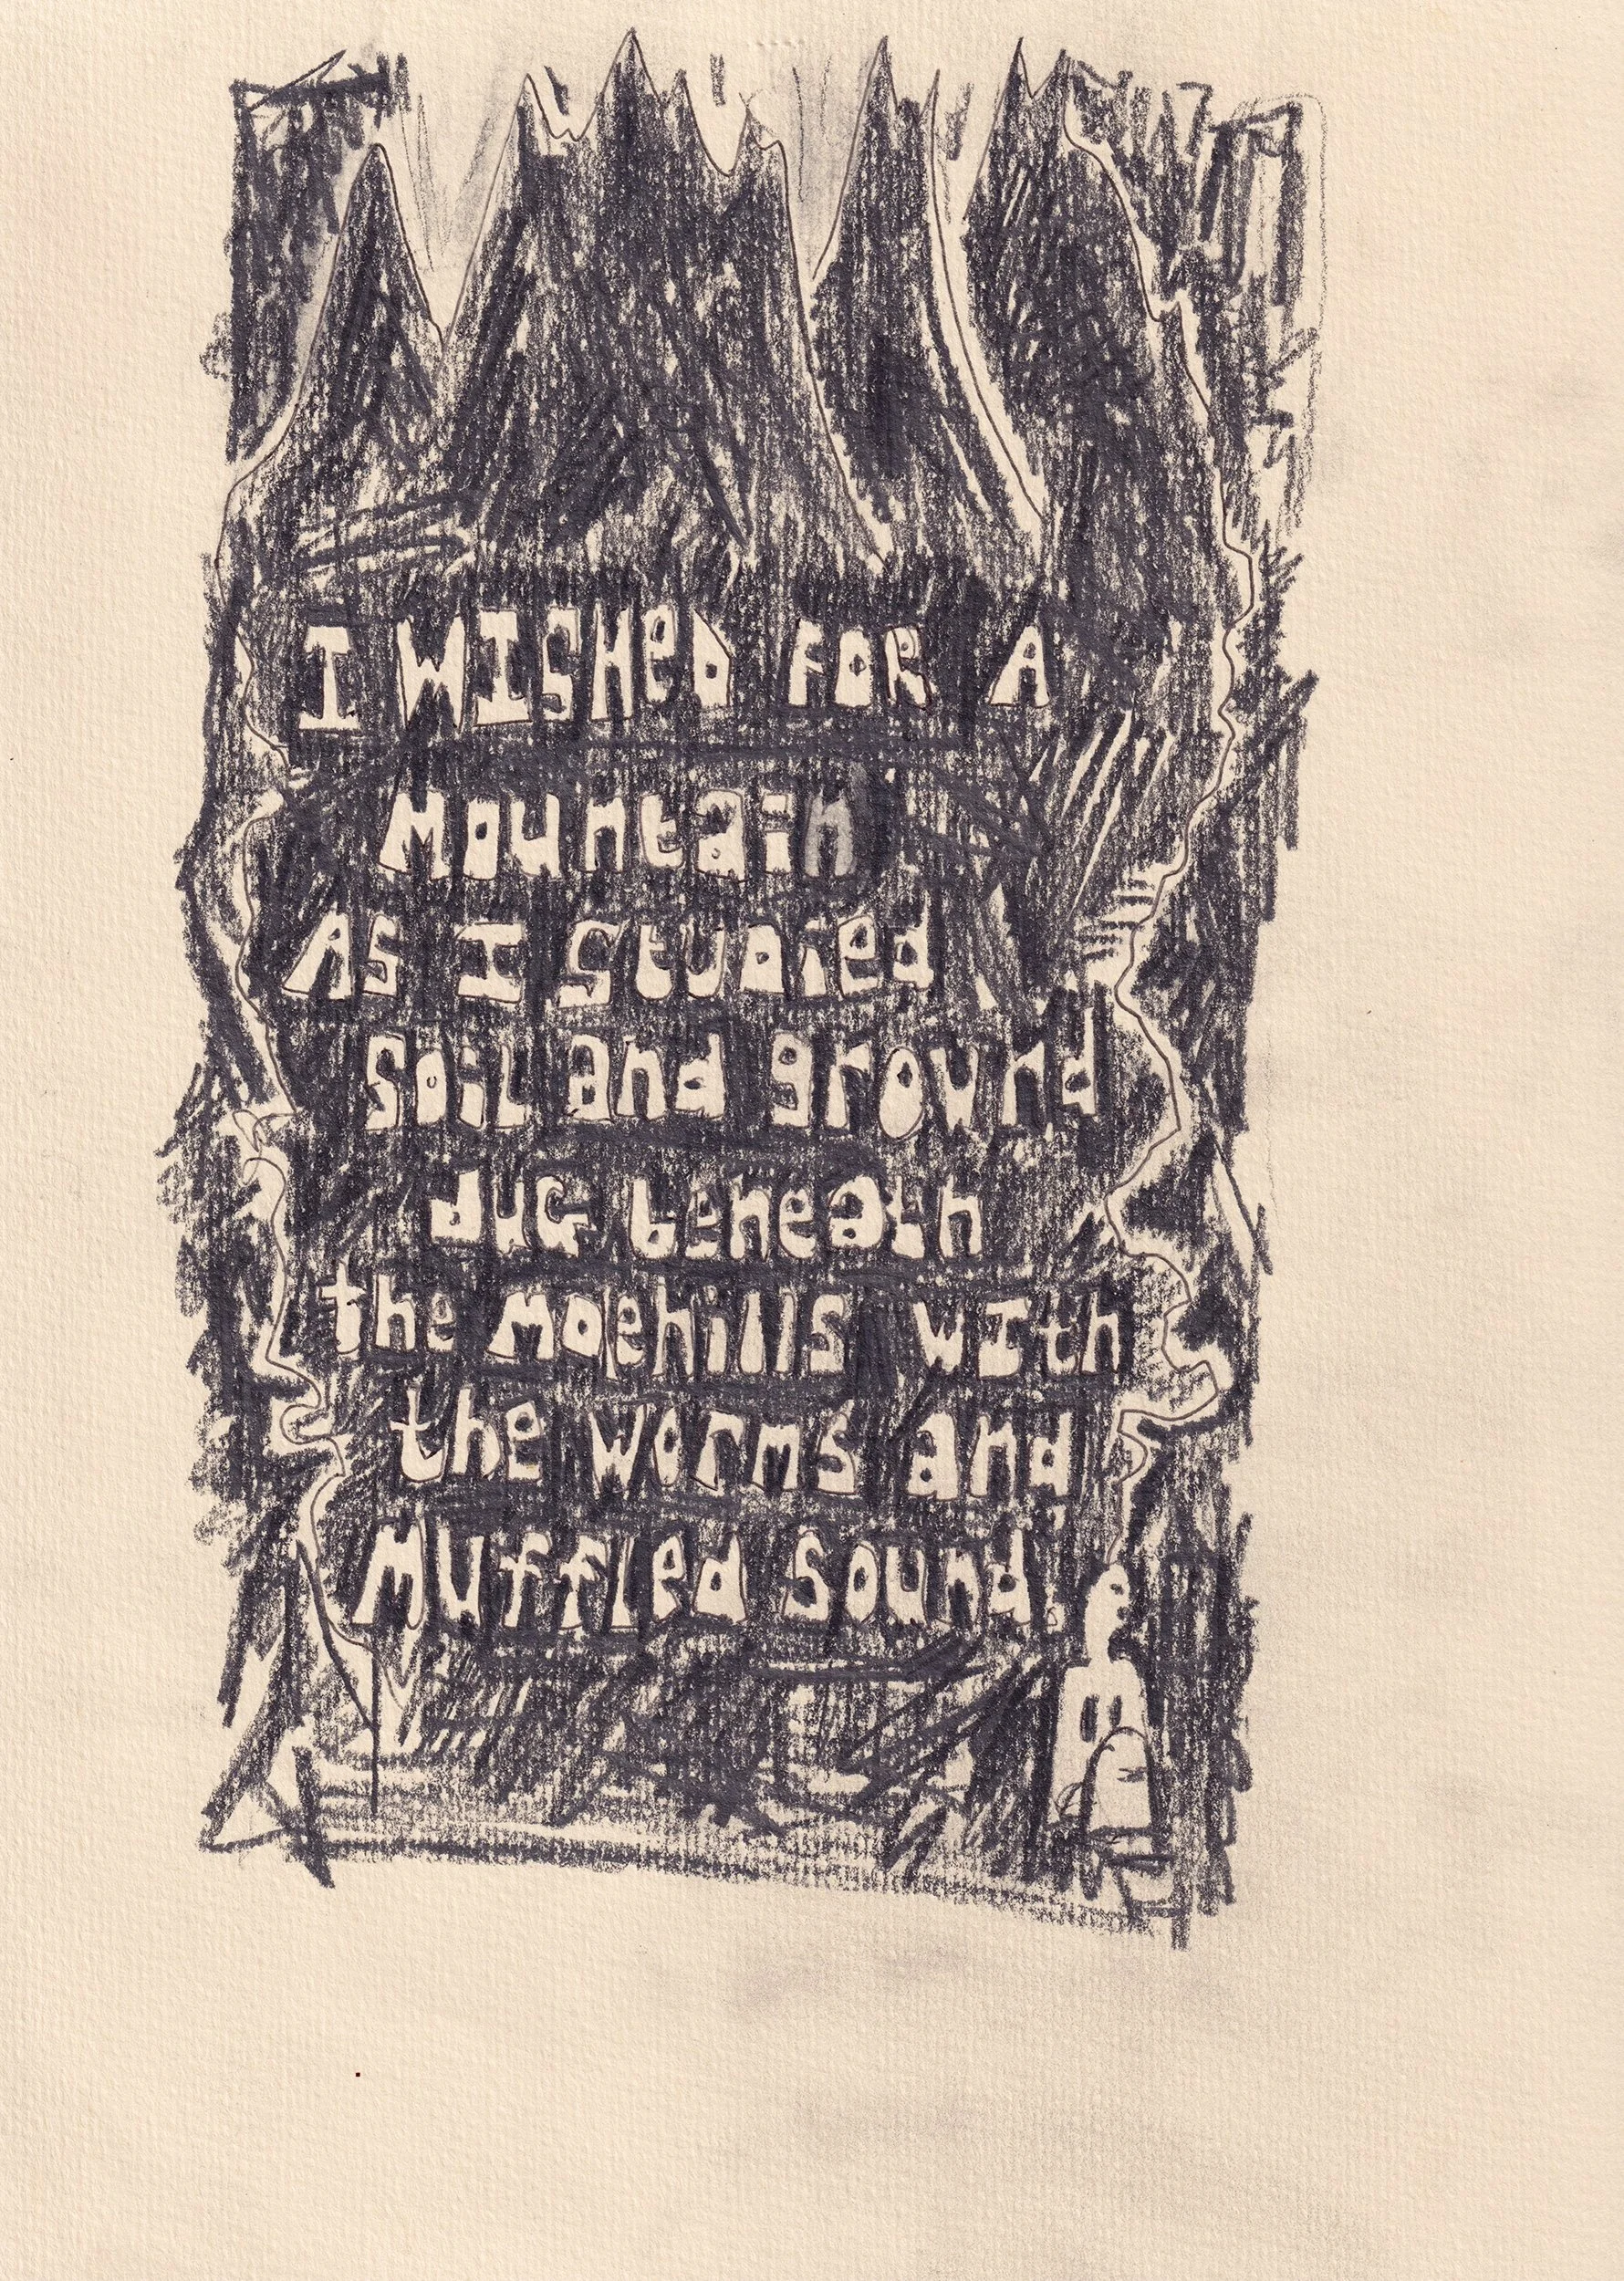 I WISHED FOR A
Mountain
As I Studied
Soil and ground
duG beneath
the Molehills WIth
the worms and
Muffled Sound.